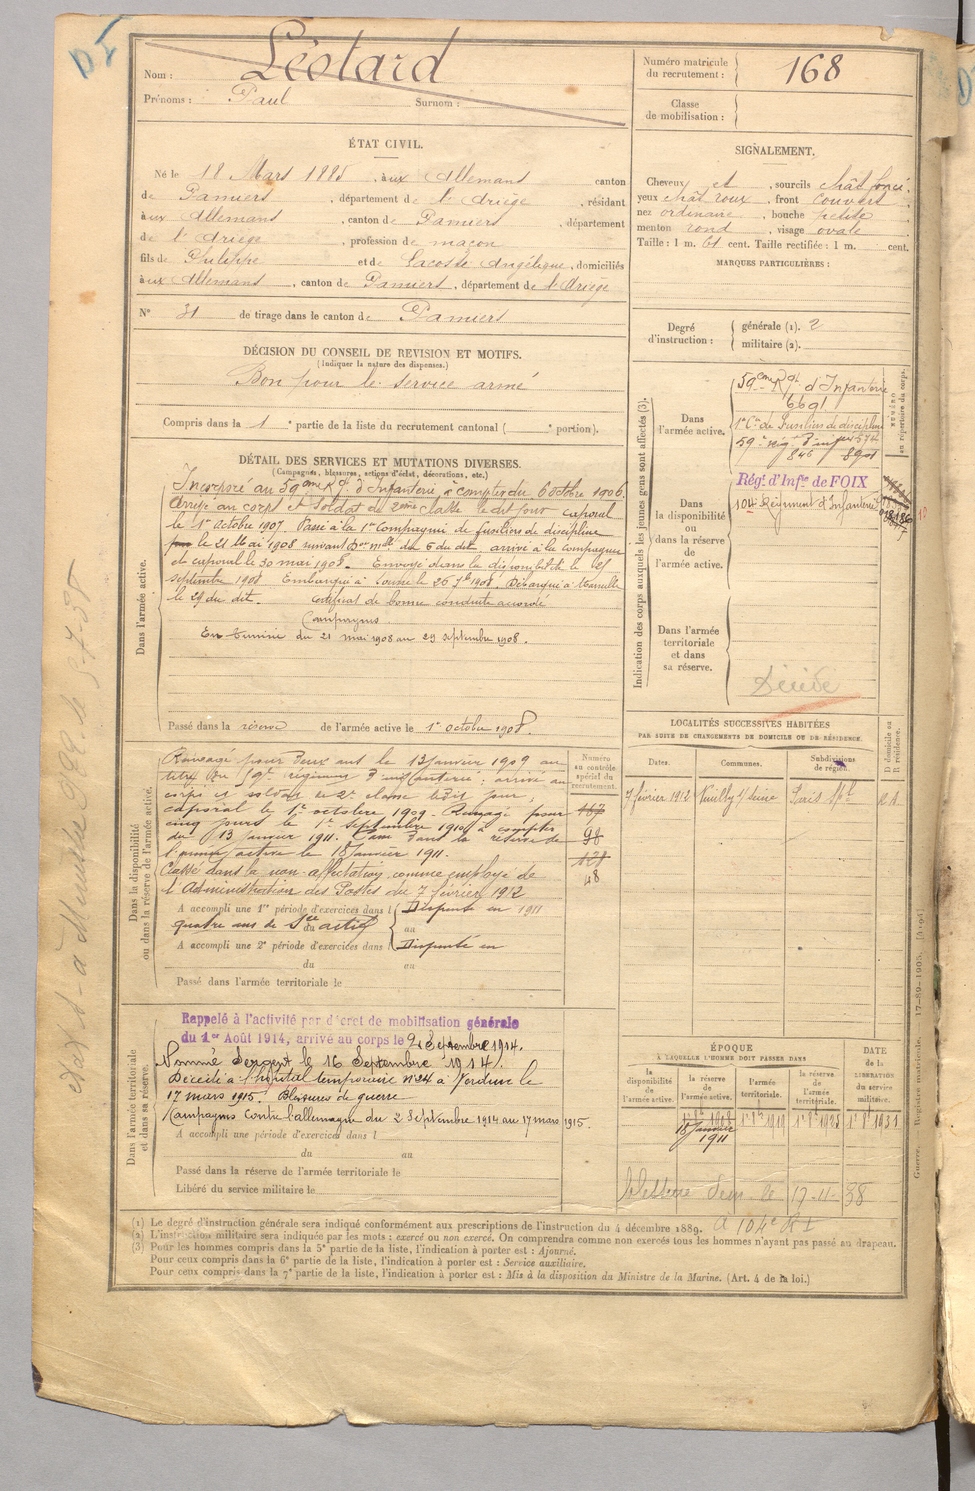 Nom : Léotard
Prénoms : Paul Surnom :
Numéro matricule du recrutement : 168
Classe de mobilisation :
ÉTAT CIVIL.
Né le 18 Mars 1885, aux Allemans canton
de Pamiers, département de l'Ariège, résidant
aux Allemans, canton de Pamiers, département
de l'Ariège, profession de maçon
fils de Philippe et de Lacoste Angélique, domiciliés
aux Allemans, canton de Pamiers, département de l'Ariège
N° 31 de tirage dans le canton de Pamiers
SIGNALEMENT.
Cheveux et, sourcils chât foncé,
yeux chât roux, front couvert
nez ordinaire, bouche petite
menton rond, visage ovale
Taille : 1 m. 61 cent. Taille rectifiée : 1 m. cent.
MARQUES PARTICULIÈRES :
Degré d'instruction : générale (1). 2
militaire (2).
DÉCISION DU CONSEIL DE REVISION ET MOTIFS.
(Indiquer la nature des dispenses.)
Bon pour le service armé
Compris dans la 1e partie de la liste du recrutement cantonal ( e portion).
DÉTAIL DES SERVICES ET MUTATIONS DIVERSES.
(Campagnes, blessures, actions d'éclat, décorations, etc.)
Dans l'armée active.
Incorporé au 59eme Rgt d'Infanterie à compter du 6 octobre 1906.
Arrivé au corps et Soldat de 2eme classe le dit jour caporal
le 1er octobre 1907. Passé à la 1ere Compagnie de fusiliers de discipline
le 21 Mai 1908 suivant mlle du 5 du dit. arrivé à la compagnie
et caporal le 30 mai 1908. Envoyé dans la disponibilité le 25
septembre 1908 Embarqué à Sousse le 26 7bre 1908. Débarqué à Marseille
le 29 du dit. Certificat de bonne conduite accordé
Campagnes
En Tunisie du 21 mai 1908 au 29 septembre 1908.
Passé dans la réserve de l'armée active le 1er octobre 1908.
Indication des corps auxquels les jeunes gens sont affectés (3).
NUMÉRO au répertoire du corps.
Dans l'armée active.
59eme Rgt d'Infanterie
6691
1e Cie de Fusiliers de discipline
59e rég. d'infrie
846 8901
Dans la disponibilité ou dans la réserve de l'armée active.
Régt d'Infie de FOIX
104 Régiment d'Infanterie
Dans l'armée territoriale et dans sa réserve.
Décédé
LOCALITÉS SUCCESSIVES HABITÉES
PAR SUITE DE CHANGEMENTS DE DOMICILE OU DE RÉSIDENCE.
Dates. Communes. Subdivisions de région. D domicile ou R résidence.
7 février 1912 Neuilly s/ Seine Paris
Dans la disponibilité ou dans la réserve de l'armée active.
Numéro au contrôle spécial du recrutement.
Rengagé pour deux ans le 13 janvier 1909 au
titre du 59e régiment d'infanterie ; arrivé au
corps et soldat de 2e classe le dit jour,
caporal le 1er octobre 1909. Rengagé pour
cinq jours le 1er septembre 1910 à compter
du 13 janvier 1911. Passé dans la réserve de
l'armée active le 18 Janvier 1911.
Classé dans la non-affectation comme employé de
l'Administration des Postes du 7 février 1912
167
98
121
48
A accompli une 1re période d'exercices dans l Dispensé en 1911
quatre ans de Sce actif du au
A accompli une 2e période d'exercices dans l Dispensé en
du au
Passé dans l'armée territoriale le
Dans l'armée territoriale et dans sa réserve.
Rappelé à l'activité par décret de mobilisation générale
du 1er Août 1914, arrivé au corps le 2 Septembre 1914.
Nommé Sergent le 16 Septembre 1914.
Décédé à l'hôpital temporaire N°24 à Verdun le
17 mars 1915. Blessures de guerre
Campagnes contre l'allemagne du 2 Septembre 1914 au 17 mars 1915.
A accompli une période d'exercices dans l
du au
Passé dans la réserve de l'armée territoriale le
Libéré du service militaire le
ÉPOQUE
A LAQUELLE L'HOMME DOIT PASSER DANS
DATE de la LIBÉRATION du service militaire.
la disponibilité de l'armée active. la réserve de l'armée active. l'armée territoriale. la réserve de l'armée territoriale.
18 Janvier 1911
17-11-38
a 104e RI
(1) Le degré d'instruction générale sera indiqué conformément aux prescriptions de l'instruction du 4 décembre 1889.
(2) L'instruction militaire sera indiquée par les mots : exercé ou non exercé. On comprendra comme non exercés tous les hommes n'ayant pas passé au drapeau.
(3) Pour les hommes compris dans la 5e partie de la liste, l'indication à porter est : Ajourné.
Pour ceux compris dans la 6e partie de la liste, l'indication à porter est : Service auxiliaire.
Pour ceux compris dans la 7e partie de la liste, l'indication à porter est : Mis à la disposition du Ministre de la Marine. (Art. 4 de la loi.)